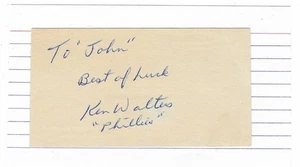 To "John"
Best of Luck
Ken Walters
"Phillies"